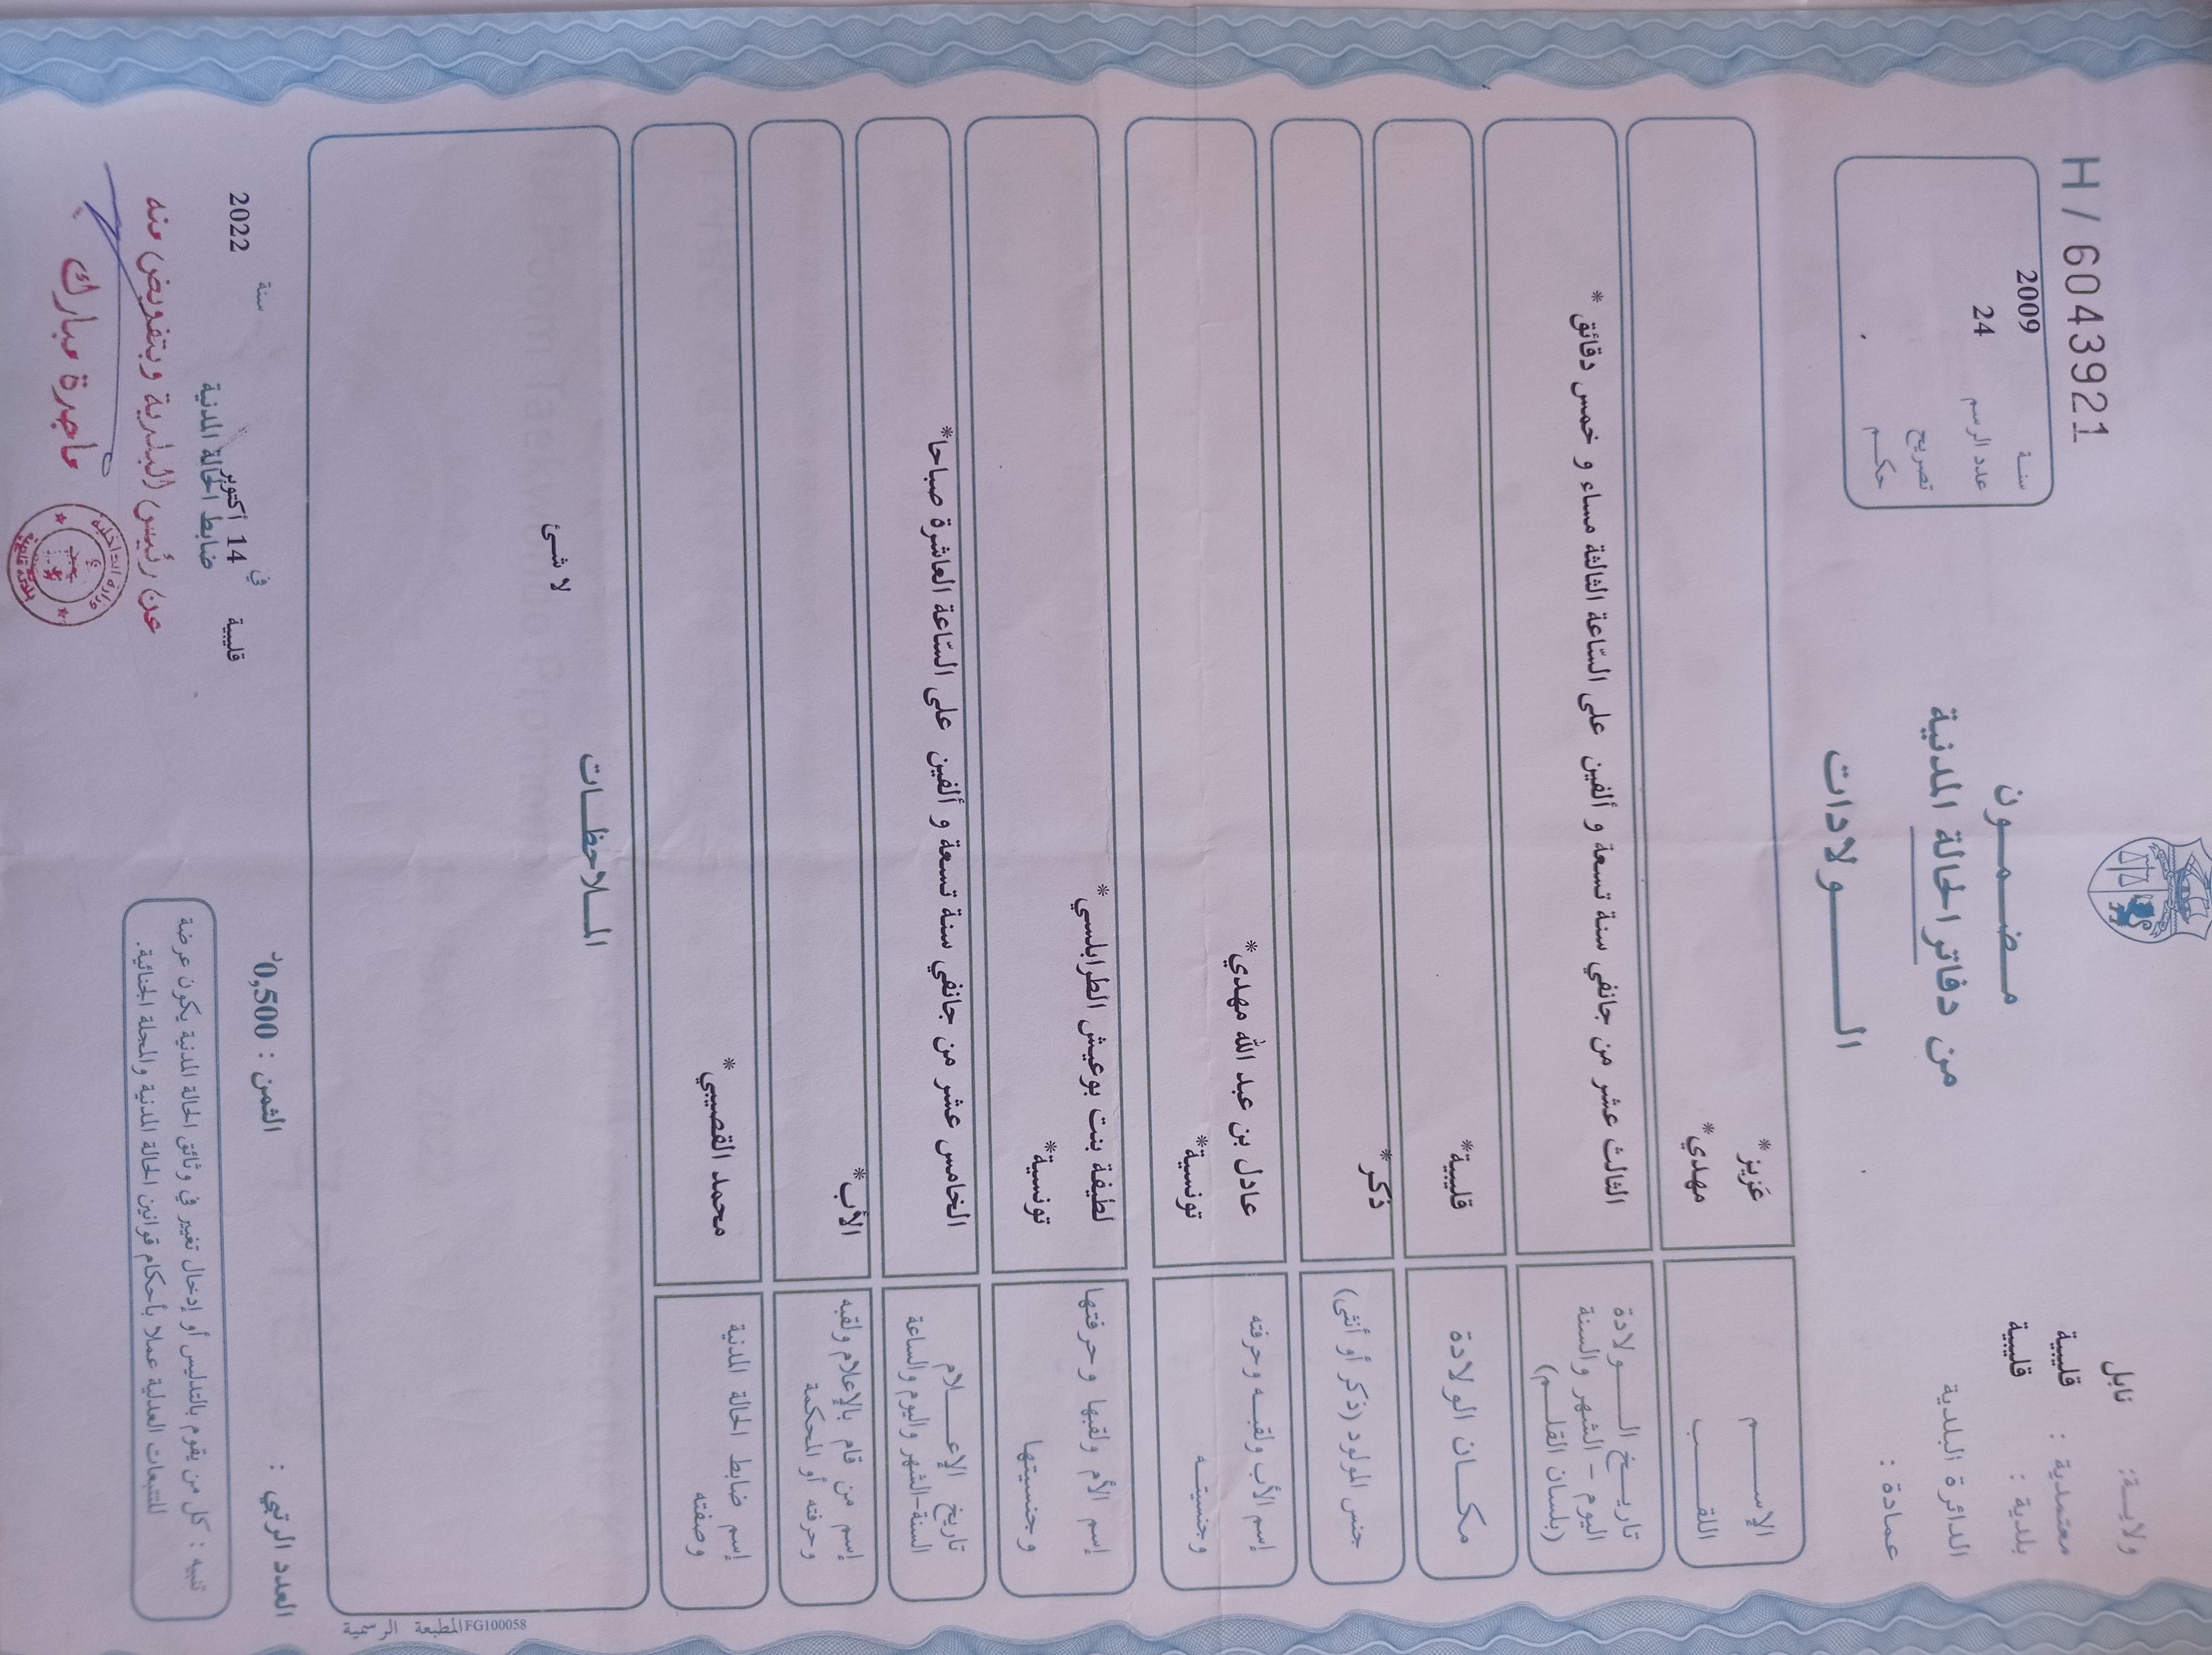 H / 6043921
سنة 2009
عدد الرسم 24
تصريح
حكم
ولاية: نابل
معتمدية : قليبية
بلدية : قليبية
الدائرة البلدية
عمادة :
مضمون
من دفاتر الحالة المدنية
الولادات
الإسم عزيز*
اللقب مهدي*
تاريخ الولادة
اليوم - الشهر والسنة
(بلسان القلم)
الثالث عشر من جانفي سنة تسعة و ألفين على السّاعة الثالثة مساء و خمس دقائق *
مكان الولادة قليبية*
جنس المولود (ذكر أو أنثى) ذكر*
إسم الأب ولقبه وحرفته
وجنسيته
عادل بن عبد الله مهدي*
تونسية*
إسم الأم ولقبها وحرفتها
وجنسيتها
لطيفة بنت بوعيش الطرابلسي*
تونسية*
تاريخ الإعلام
السنة-الشهر واليوم والساعة
الخامس عشر من جانفي سنة تسعة و ألفين على السّاعة العاشرة صباحا*
إسم من قام بالإعلام ولقبه
وحرفته أو المحكمة
الأب*
إسم ضابط الحالة المدنية
وصفته
محمد القصيبي*
الملاحظات
لا شئ
المطبعة الرسمية FG100058
العدد الرتبي :
الثمن : 0,500د
قليبية في 14 أكتوبر سنة 2022
ضابط الحالة المدنية
عن رئيس البلدية وبتفويض منه
ماجدة مبارك
وزارة الداخلية
تنبيه : كل من يقوم بالتدليس أو إدخال تغيير في وثائق الحالة المدنية يكون عرضة
للتتبعات العدلية عملا بأحكام قوانين الحالة المدنية والمجلة الجنائية.